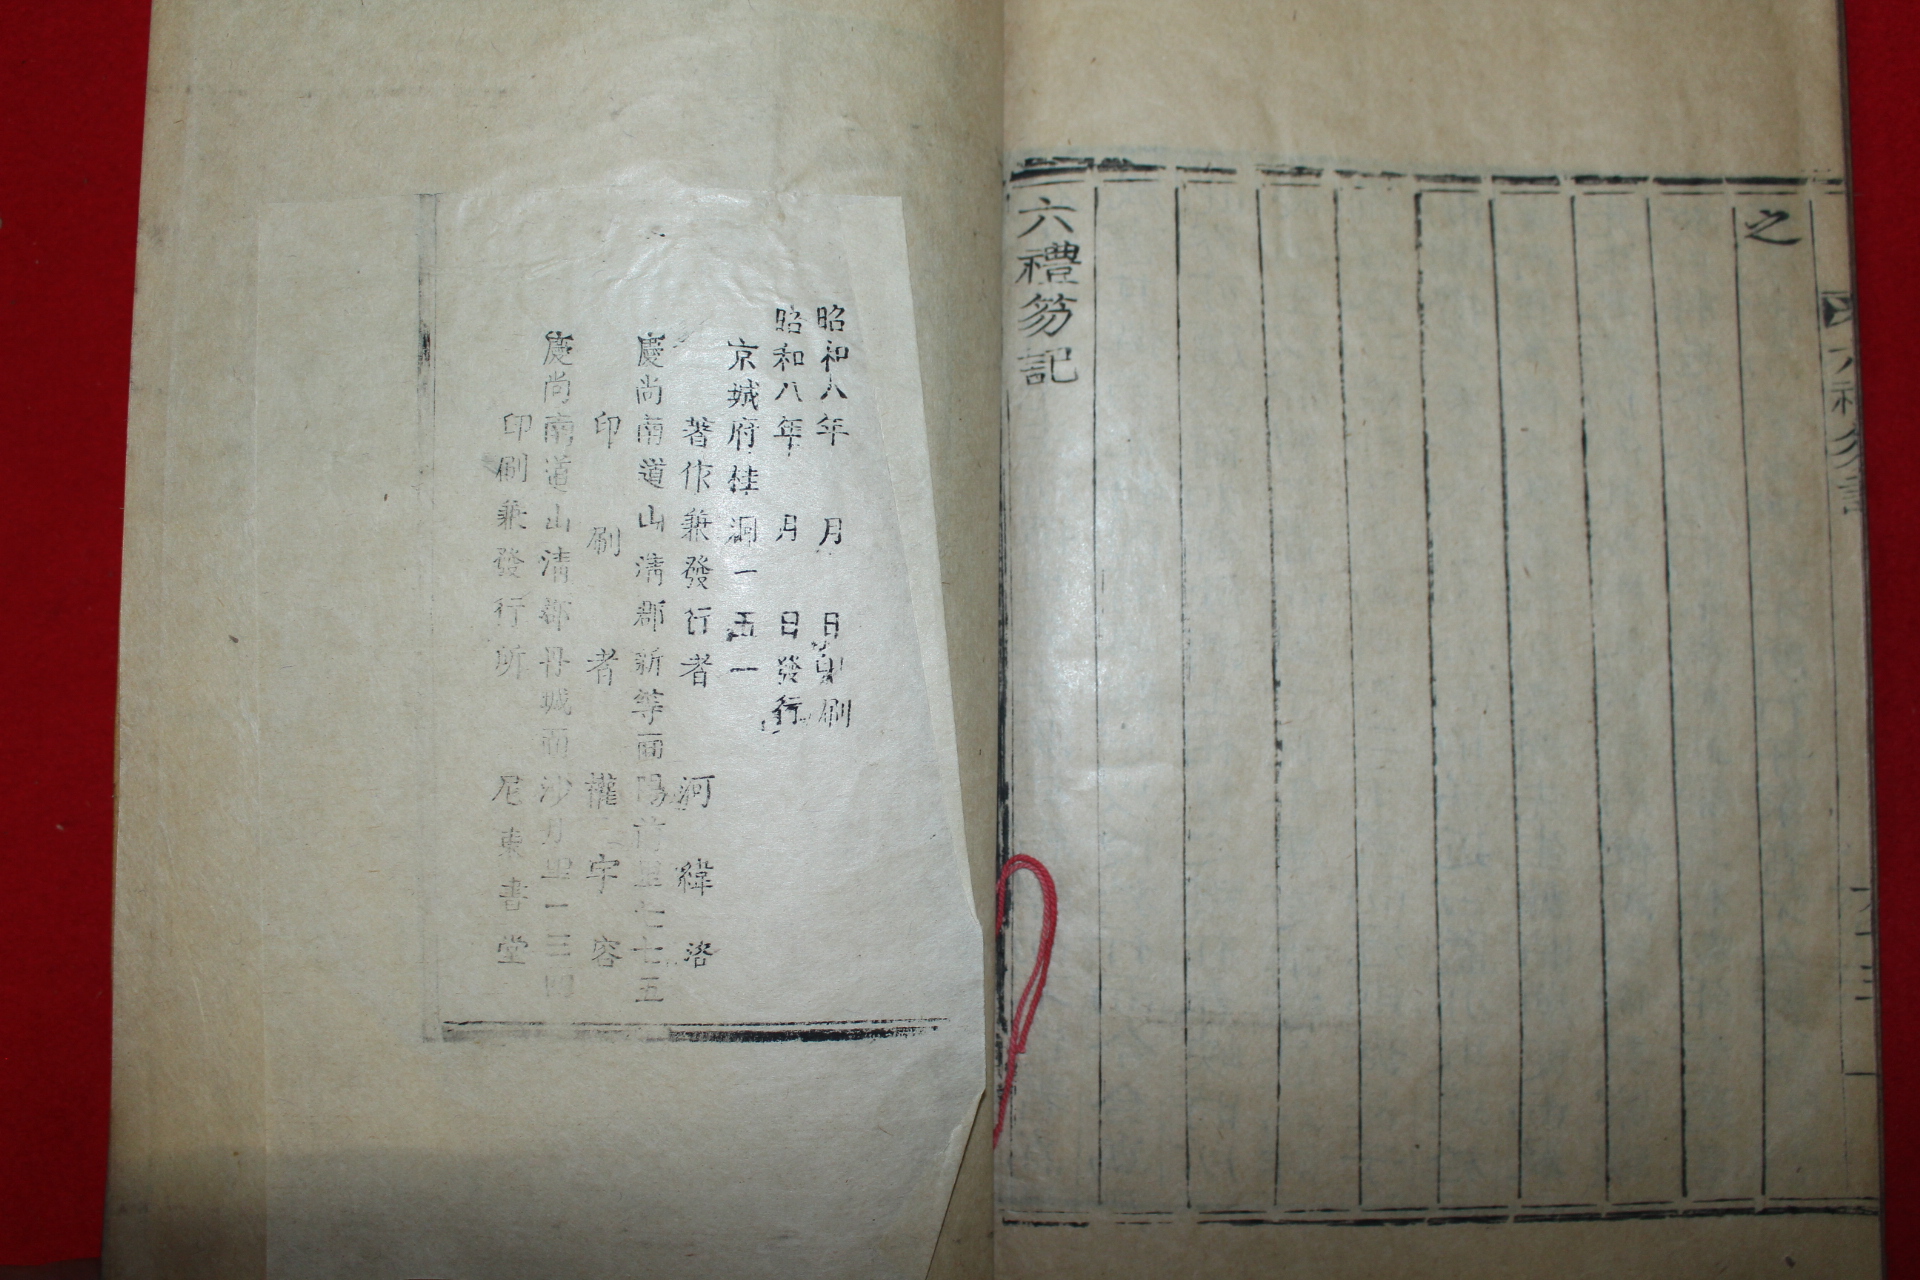 之
六禮笏記
六禮笏記
昭和八年 月 日印刷
昭和八年 月 日發行
京城府桂洞一五一
著作兼發行者 河緯洛
慶尚南道山淸郡新等面陽前里七七五
印刷者 權寧容
慶尚南道山淸郡丹城面沙月里一三四
印刷兼發行所 尼東書堂